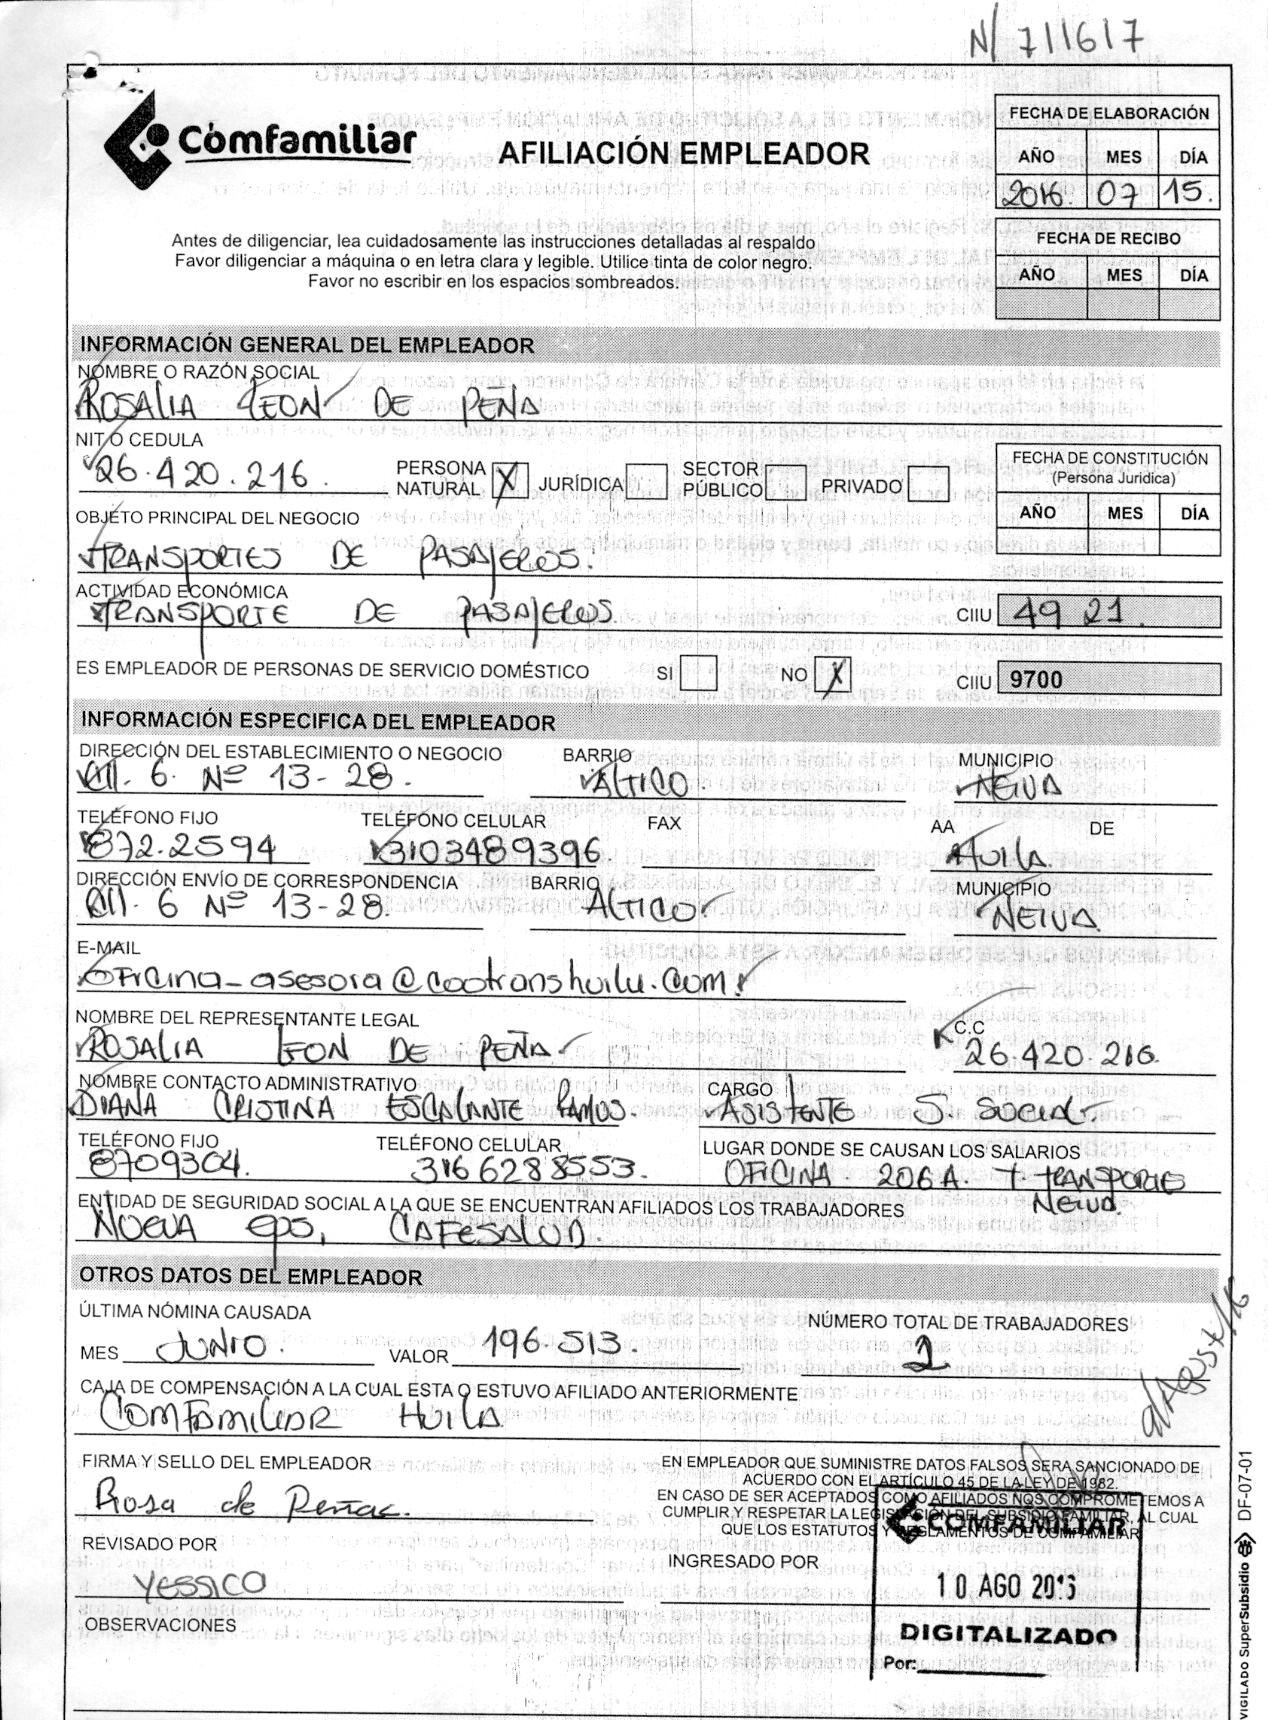 N/ 711617
Comfamiliar
AFILIACIÓN EMPLEADOR
FECHA DE ELABORACIÓN
AÑO MES DÍA
2016. 07 15.
FECHA DE RECIBO
AÑO MES DÍA
Antes de diligenciar, lea cuidadosamente las instrucciones detalladas al respaldo
Favor diligenciar a máquina o en letra clara y legible. Utilice tinta de color negro.
Favor no escribir en los espacios sombreados.
INFORMACIÓN GENERAL DEL EMPLEADOR
NOMBRE O RAZÓN SOCIAL
ROSALIA LEON DE PEÑA
NIT O CEDULA
26.420.216.
PERSONA NATURAL X JURÍDICA SECTOR PÚBLICO PRIVADO
FECHA DE CONSTITUCIÓN
(Persona Juridica)
AÑO MES DÍA
OBJETO PRINCIPAL DEL NEGOCIO
TRANSPORTES DE PASAJEROS.
ACTIVIDAD ECONÓMICA
TRANSPORTE DE PASAJEROS
CIIU 49 21.
ES EMPLEADOR DE PERSONAS DE SERVICIO DOMÉSTICO SI NO X CIIU 9700
INFORMACIÓN ESPECIFICA DEL EMPLEADOR
DIRECCIÓN DEL ESTABLECIMIENTO O NEGOCIO BARRIO MUNICIPIO
Cll. 6 Nº 13-28. ALTICO. NEIVA
TELÉFONO FIJO TELÉFONO CELULAR FAX AA DE
872.2594 3103489396 HUILA.
DIRECCIÓN ENVÍO DE CORRESPONDENCIA BARRIO MUNICIPIO
Cll. 6 Nº 13-28. ALTICO. NEIVA
E-MAIL
oficina_asesora@cootranshuila.com.
NOMBRE DEL REPRESENTANTE LEGAL C.C
ROSALIA LEON DE PEÑA 26.420.216.
NOMBRE CONTACTO ADMINISTRATIVO CARGO
DIANA CRISTINA ESCALANTE RAMOS ASISTENTE S. SOCIAL.
TELÉFONO FIJO TELÉFONO CELULAR LUGAR DONDE SE CAUSAN LOS SALARIOS
8709304. 3166288553. OFICINA 206A. T. TRANSPORTES
Neiva.
ENTIDAD DE SEGURIDAD SOCIAL A LA QUE SE ENCUENTRAN AFILIADOS LOS TRABAJADORES
NUEVA eps, CAFESALUD.
OTROS DATOS DEL EMPLEADOR
ÚLTIMA NÓMINA CAUSADA NÚMERO TOTAL DE TRABAJADORES
MES JUNIO. VALOR 196.513 2
CAJA DE COMPENSACIÓN A LA CUAL ESTA O ESTUVO AFILIADO ANTERIORMENTE
COMFAMILIAR HUILA
FIRMA Y SELLO DEL EMPLEADOR
Rosa de Peña
EN EMPLEADOR QUE SUMINISTRE DATOS FALSOS SERA SANCIONADO DE
ACUERDO CON EL ARTÍCULO 45 DE LA LEY DE 1982.
EN CASO DE SER ACEPTADOS COMO AFILIADOS NOS COMPROMETEMOS A
CUMPLIR Y RESPETAR LA LEGISLACIÓN DEL SUBSIDIO FAMILIAR, AL CUAL
QUE LOS ESTATUTOS Y REGLAMENTOS DE COMFAMILIAR
REVISADO POR
YESSICA
INGRESADO POR
COMFAMILIAR
10 AGO 2016
DIGITALIZADO
Por:
OBSERVACIONES
VIGILADO SuperSubsidio DF-07-01